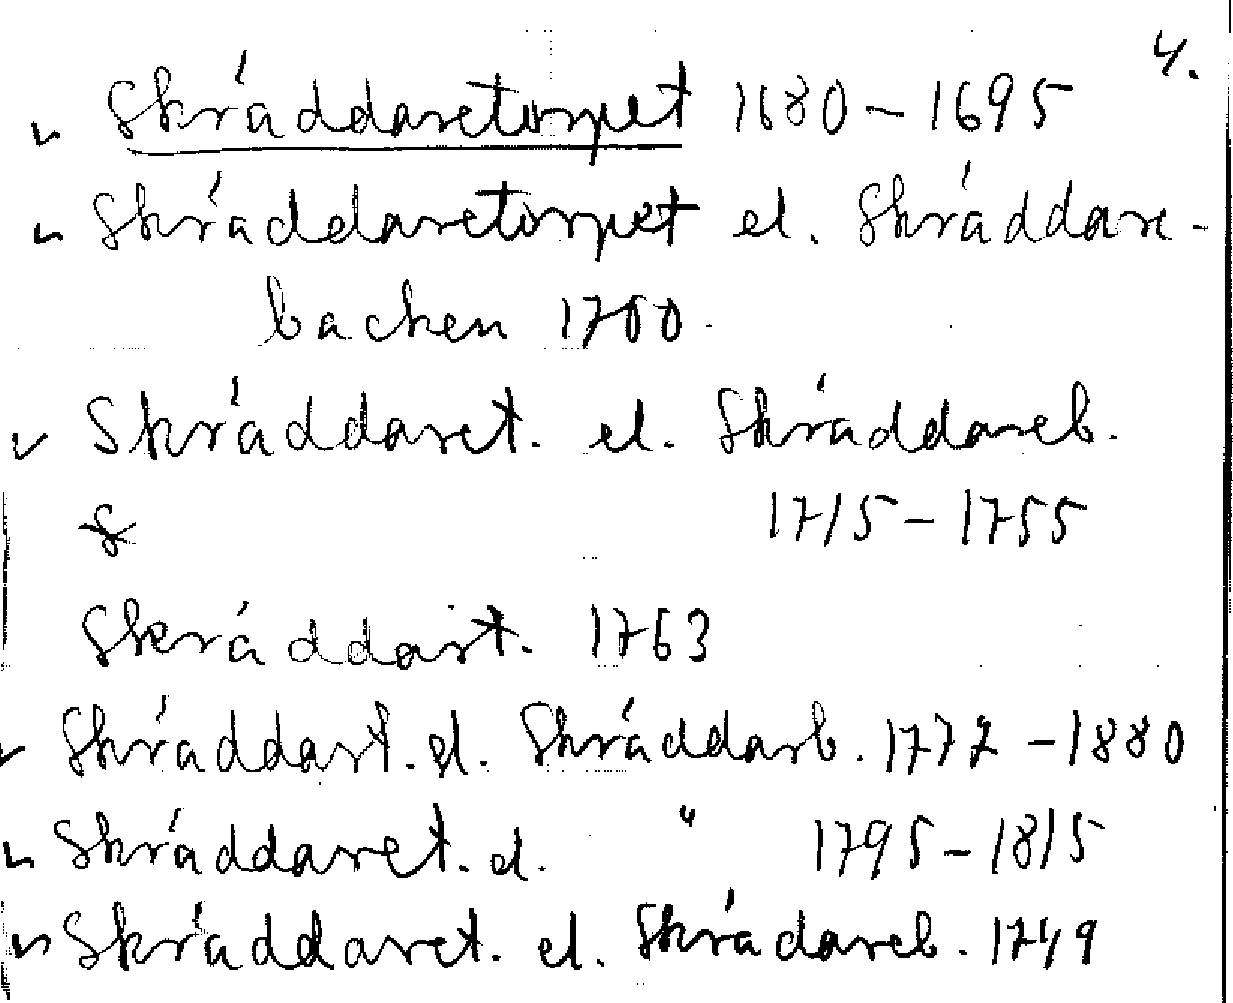 4.
Skräddaretorpet 1680 - 1695
Skräddaretorpet el. Skräddare-
backen 1700
Skräddaret. el. Skräddareb.
1715 - 1755
Skräddart. 1763
Skräddart. el. Skräddarb. 1772 - 1880
Skräddaret. el. " 1795 - 1815
Skräddaret. el. Skrädareb. 1749